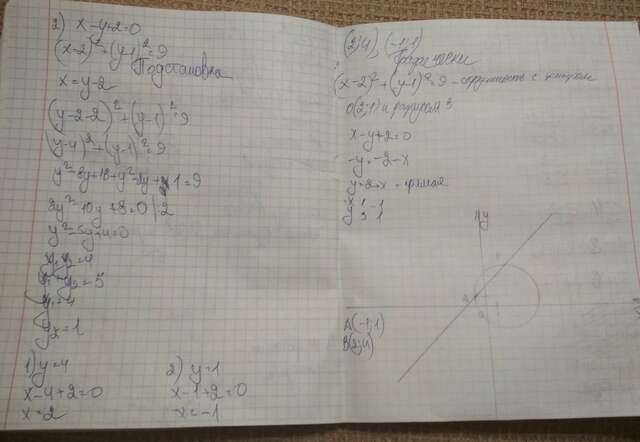 2) x-y+2=0
(x-2)²+(y-1)²=9
Подстановка
x=y-2
(y-2-2)²+(y-1)²=9
(y-4)²+(y-1)²=9
y²-8y+16+y²-2y+1=9
2y²-10y+8=0 |2
y²-5y+4=0
y₁y₂=4
y₁+y₂=5
y₁=4
y₂=1
1) y=4
x-4+2=0
x=2
2) y=1
x-1+2=0
x=-1
(2;4), (-1;1)
Графически
(x-2)²+(y-1)²=9 - окружность с центром
O(2;1) и радиусом 3
x-y+2=0
-y=-2-x
y=2+x - прямая
x 1 -1
y 3 1
y
A(-1;1)
B(2;4)